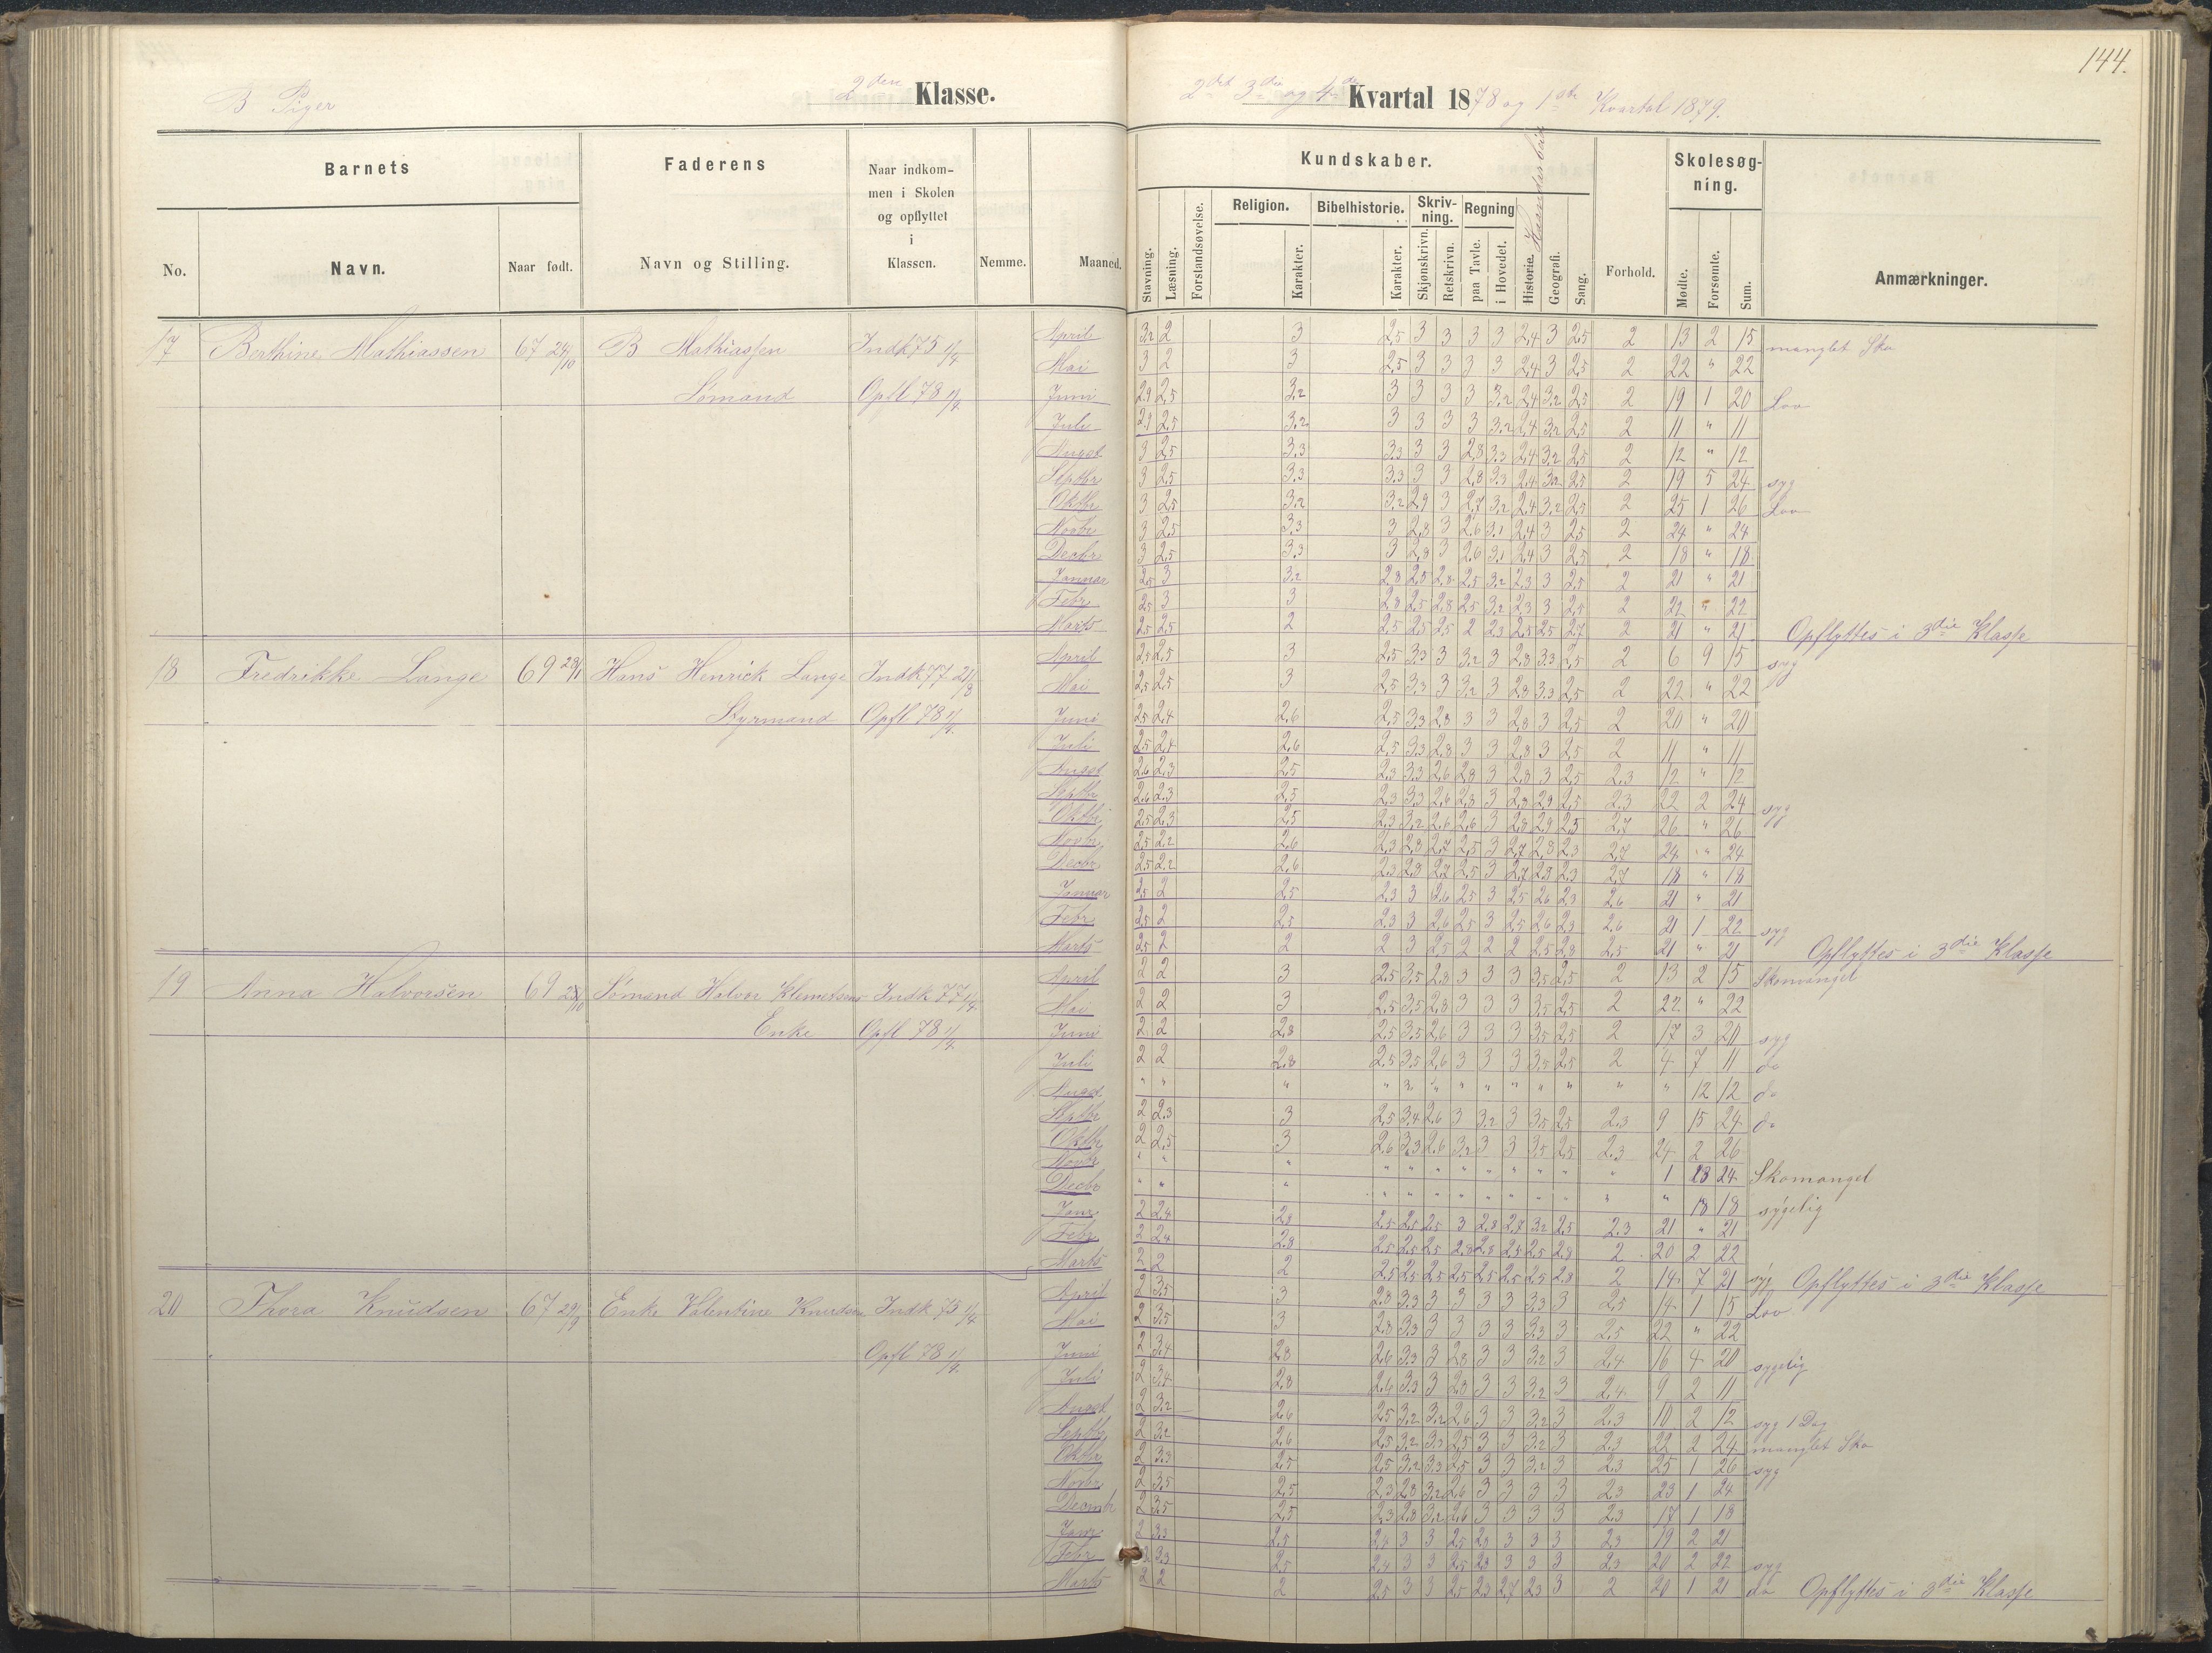 144.
B Piger 2den Klasse. 2det 3die og 4de Kvartal 1878 og 1ste Kvartal 1879.
Barnets Faderens Naar indkommen i Skolen og opflyttet i Klassen. Nemme. Maaned. Kundskaber. Forhold. Skolesøgning. Anmærkninger.
No. Navn. Naar født. Navn og Stilling.
Stavning. Læsning. Forstandsøvelse. Religion. Karakter. Bibelhistorie. Karakter. Skrivning. Skjønskrivn. Retskrivn. Regning paa Tavle. i Hovedet. Historie. Haandarbeide Geografi. Sang. Mødte. Forsømte. Sum.
17 Berthine Mathiassen 67 24/10 B Mathiassen Indk 75 1/4 April 3,2 2 3 2,5 3 3 3 3 2,4 3 2,5 2 13 2 15 manglet Sko
Mai 3 2 3 2,5 3 3 3 3 2,4 3 2,5 2 22 " 22
Sømand Opfl 78 1/4 Juni 2,9 2,5 3,2 3 3 3 3 3,2 2,4 3,2 2,5 2 19 1 20 Lov
Juli 2,9 2,5 3,2 3 3 3 3 3,2 2,4 3,2 2,5 2 11 " 11
Augst 3 2,5 3,3 3,3 3 3 2,8 3,3 2,4 3,2 2,5 2 12 " 12
Septbr 3 2,5 3,3 3,3 3 3 2,8 3,3 2,4 3,2 2,5 2 19 5 24 syg
Oktbr 3 2,5 3,2 3,2 2,9 3 2,7 3,2 2,4 3,2 2,5 2 25 1 26 Lov
Novbr 3 2,5 3,3 3 2,8 3 2,6 3,1 2,4 3 2,5 2 24 " 24
Decbr 3 2,5 3,3 3 2,8 3 2,6 3,1 2,4 3 2,5 2 18 " 18
Januar 2,5 3 3,2 2,8 2,5 2,8 2,5 3,2 2,3 3 2,5 2 21 " 21
Febr 2,5 3 3 2,8 2,5 2,8 2,5 3,2 2,3 3 2,5 2 22 " 22
Marts 2,5 2,5 2 2,5 2,5 2,5 2 2,3 2,5 2,5 2,7 2 21 " 21 Opflyttes i 3die Klasse
18 Fredrikke Lange 69 28/1 Hans Henrick Lange Indk 77 21/8 April 2,5 2,5 3 2,5 3,3 3 3,2 3 2,8 3,3 2,5 2 6 9 15 syg
Mai 2,5 2,5 3 2,5 3,3 3 3,2 3 2,8 3,3 2,5 2 22 " 22
Styrmand Opfl 78 1/4 Juni 2,5 2,4 2,6 2,5 3,3 2,8 3 3 2,8 3 2,5 2 20 " 20
Juli 2,5 2,4 2,6 2,5 3,3 2,8 3 3 2,8 3 2,5 2 11 " 11
Augst 2,6 2,3 2,5 2,3 3,3 2,6 2,8 3 2,8 3 2,5 2,3 12 " 12
Septbr 2,6 2,3 2,5 2,3 3,3 2,6 2,8 3 2,8 2,9 2,5 2,3 22 2 24 syg
Oktbr 2,5 2,3 2,5 2,3 3,2 2,6 2,6 3 2,8 2,9 2,5 2,7 26 " 26
Novbr 2,5 2,2 2,6 2,3 2,8 2,7 2,5 3 2,7 2,8 2,3 2,7 24 " 24
Decbr 2,5 2,2 2,6 2,3 2,8 2,7 2,5 3 2,7 2,8 2,3 2,7 18 " 18
Januar 2,5 2 2,5 2,3 3 2,6 2,5 3 2,5 2,6 2,3 2,6 21 " 21
Febr 2,5 2 2,5 2,3 3 2,6 2,5 3 2,5 2,6 2,3 2,6 21 1 22 syg
Marts 2,5 2 2 2 3 2,5 2 2 2 2,5 2,8 2,5 21 " 21 Opflyttes i 3die Klasse
19 Anna Halvorsen 69 28/10 Sømand Halvor Klemetsens Indk 77 1/4 April 2 2 3 2,5 3,5 2,8 3 3 3 3,5 2,5 2 13 2 15 Skomangel
Mai 2 2 3 2,5 3,5 2,8 3 3 3 3,5 2,5 2 22 " 22
Enke Opfl 78 1/4 Juni 2 2 2,8 2,5 3,5 2,6 3 3 3 3,5 2,5 2 17 3 20 syg
Juli 2 2 2,8 2,5 3,5 2,6 3 3 3 3,5 2,5 2 4 7 11 do
Augst " " " " " " " " " " " " " 12 12 do
Septbr 2 2,3 3 2,5 3,4 2,6 3 3,2 3 3,5 2,5 2,3 9 15 24 do
Oktbr 2 2,5 3 2,6 3,3 2,6 3,2 3 3 3,5 2,5 2,3 24 2 26
Novbr " " " " " " " " " " " " 1 23 24 Skomangel
Decbr " " " " " " " " " " " " " 18 18 sygelig
Janr 2 2,4 2,8 2,5 2,5 2,5 3 2,8 2,7 3,2 2,5 2,3 21 " 21
Febr 2 2,4 2,8 2,5 2,5 2,5 2,8 2,8 2,5 2,5 2,8 2 20 2 22
Marts 2 2 2 2,5 2,5 2,5 2,5 2,5 2,5 2,5 2,8 2 14 7 21 syg Opflyttes i 3die Klasse
20 Thora Knudsen 67 29/9 Enke Valentine Knudsen Indk 75 1/4 April 2 3,5 3 2,8 3,3 3 3 3 3 3,3 3 2,5 14 1 15 Lov
Mai 2 3,5 3 2,8 3,3 3 3 3 3 3,3 3 2,5 22 " 22
Opfl 78 1/4 Juni 2 3,4 2,8 2,6 3,3 3 2,8 3 3 3,2 3 2,4 16 4 20 sygelig
Juli 2 3,4 2,8 2,6 3,3 3 2,8 3 3 3,2 3 2,4 9 2 11
Augst 2 3,2 2,6 2,5 3,2 3,2 2,6 3 3 3,2 3 2,3 10 2 12 syg 1 Dag
Septbr 2 3,2 2,6 2,5 3,2 3,3 2,5 3 3 3,2 3 2,3 22 2 24 manglet Sko
Oktbr 2 3,3 2,5 2,5 3,2 3,3 2,5 3 3 3,2 3 2,3 25 1 26 syg
Novbr 2 3,5 2,5 2,3 2,8 3,2 2,6 3 3 3 3 2,3 23 1 24
Decmbr 2 3,5 2,5 2,3 2,8 3,2 2,6 3 3 3 3 2,3 17 1 18
Janr 2 3,3 2,5 2,4 3 3 2,5 2,8 3 3 3 2,3 19 2 21
Febr 2 3,3 2,5 2,4 3 3 2,5 2,8 3 3 3 2,3 20 2 22 syg
Marts 2 2 2 2,5 3 3 2,5 2,3 2,7 2,3 3 2 20 1 21 do Opflyttes i 3die Klasse